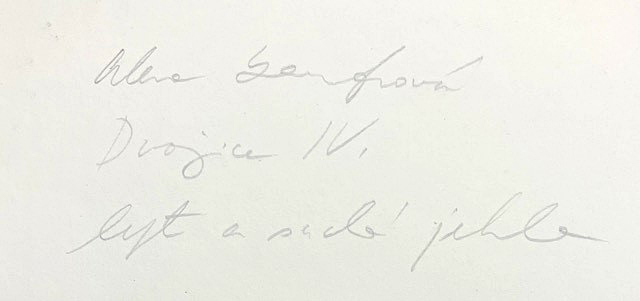 Alena
Dvojice IV.
lept a suchá jehla